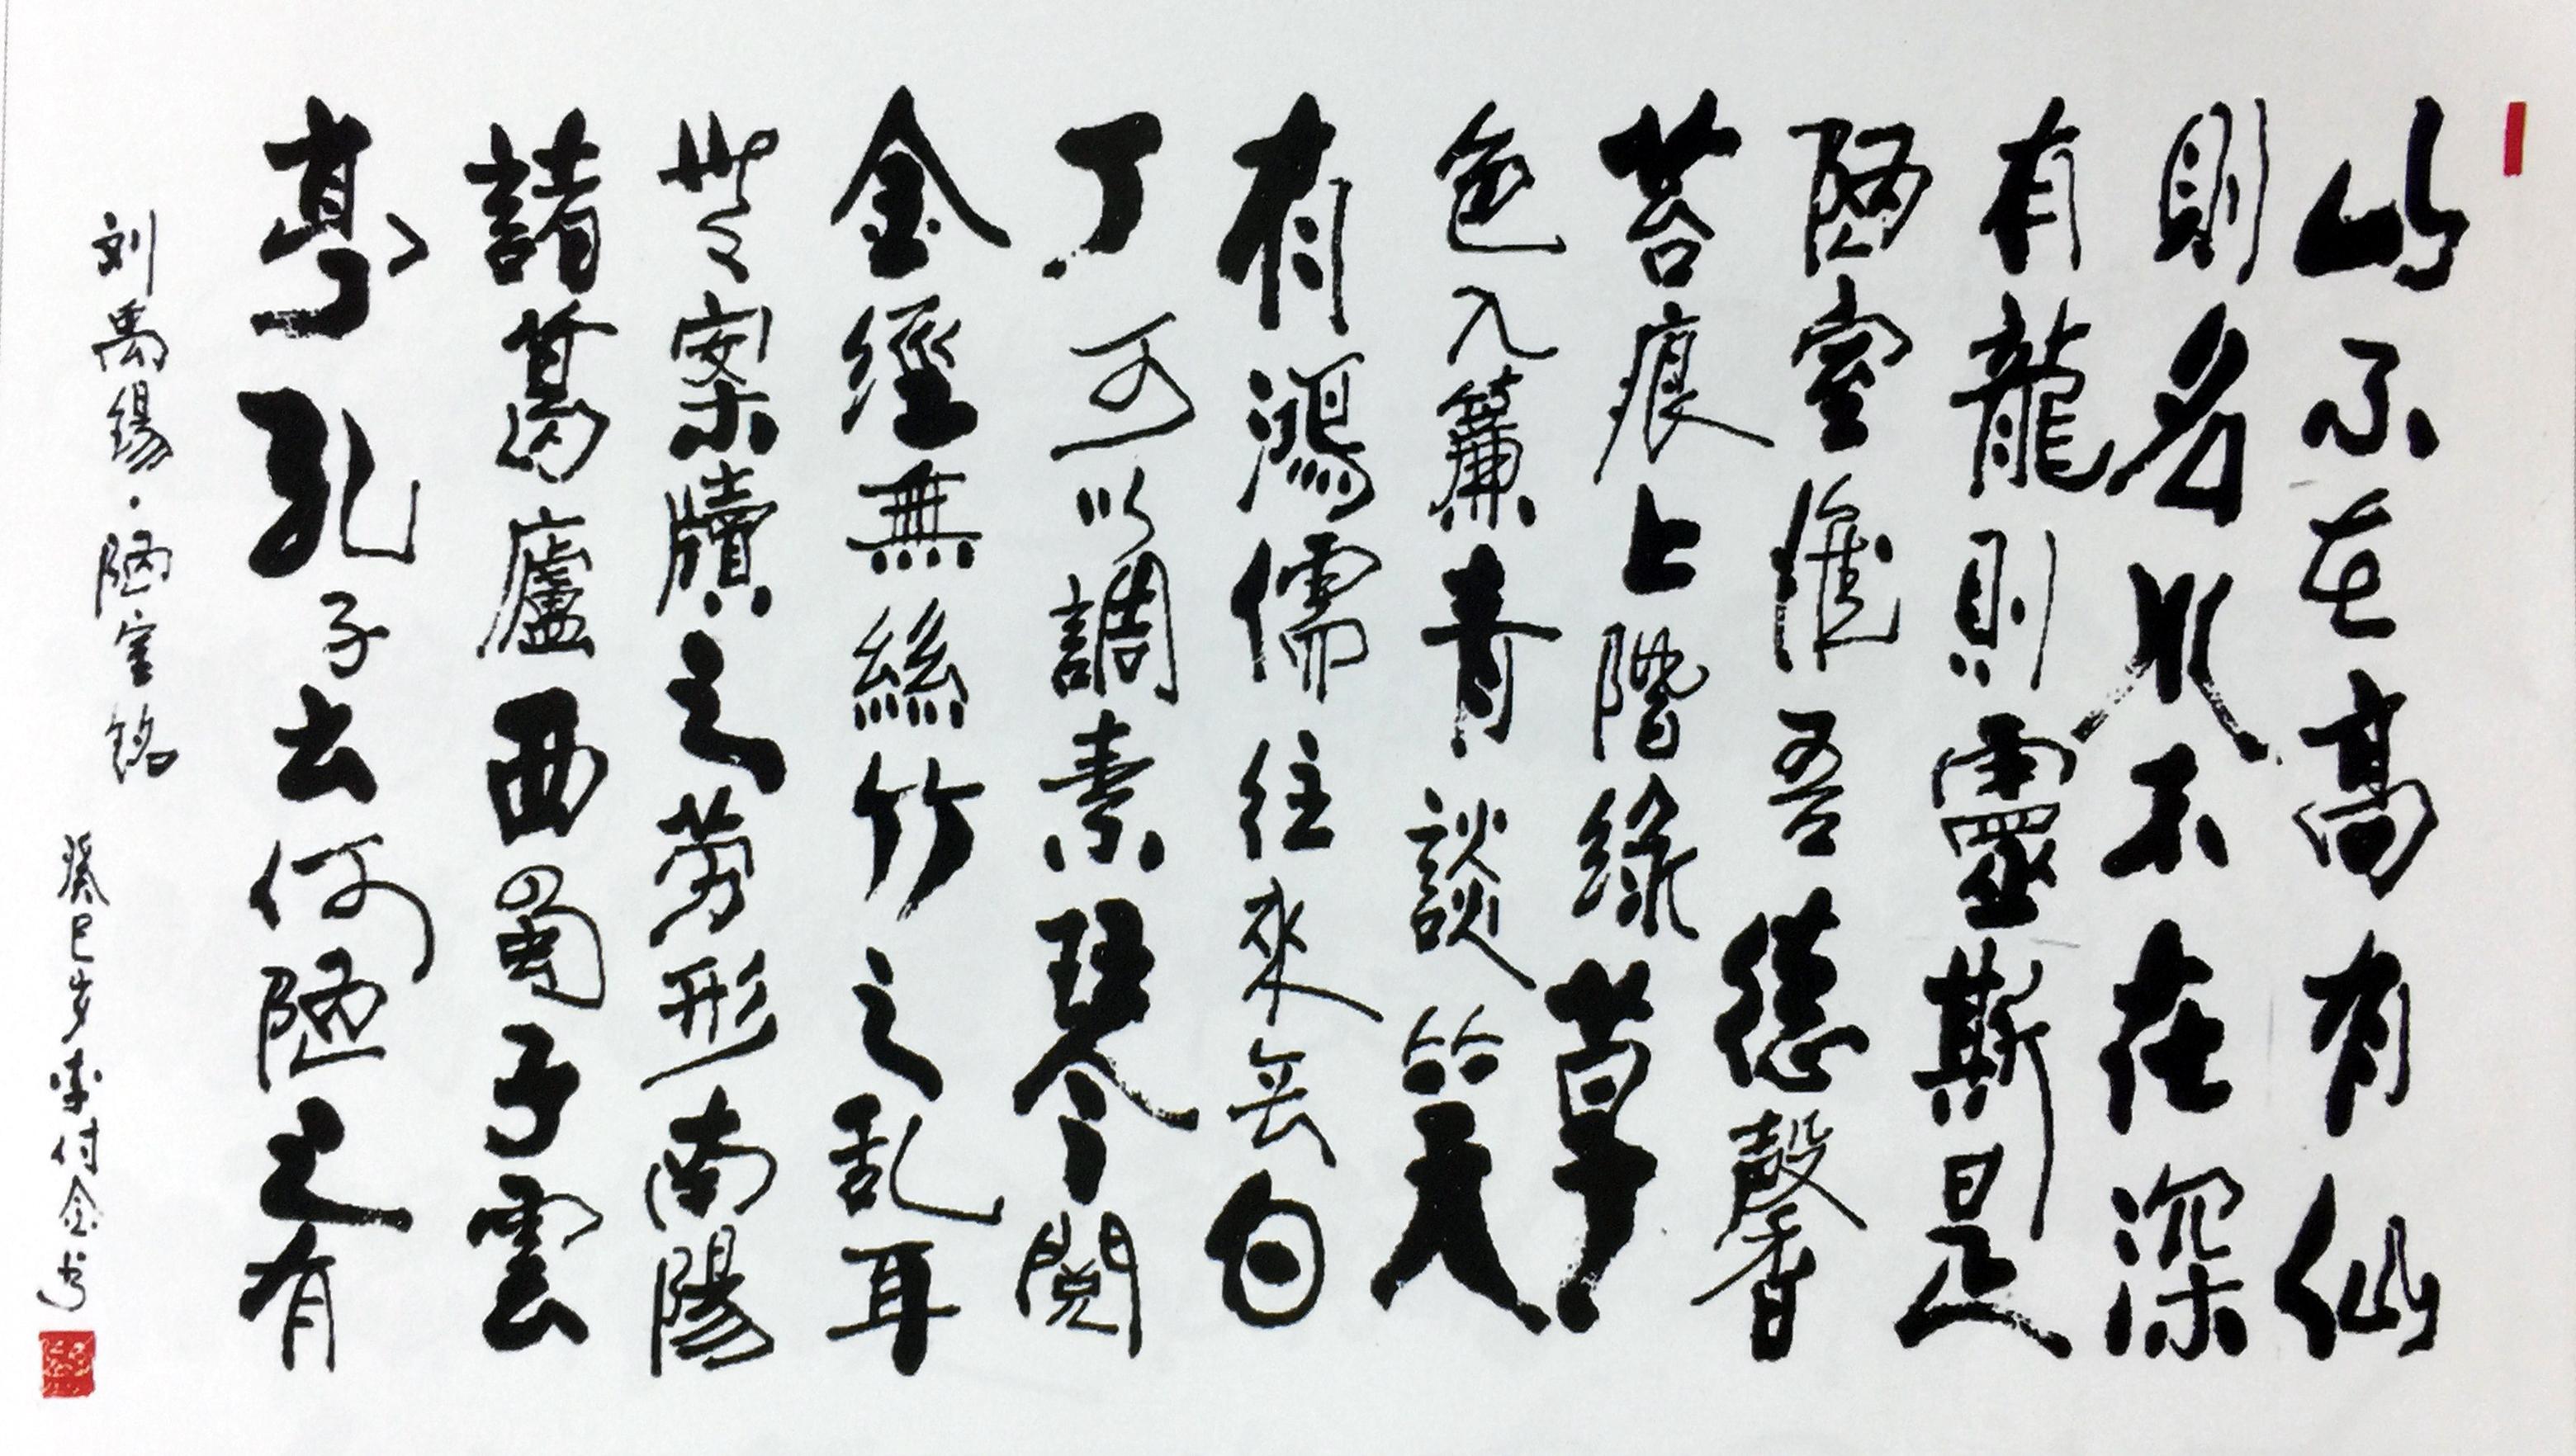 山不在高有仙
則名水不在深
有龍則靈斯是
陋室惟吾德馨
苔痕上階綠草
色入簾青談笑
有鴻儒往來無白
丁可以調素琴閱
金經無絲竹之亂耳
無案牘之勞形南陽
諸葛廬西蜀子雲
亭孔子云何陋之有
刘禹锡·陋室铭
癸巳岁李付金书